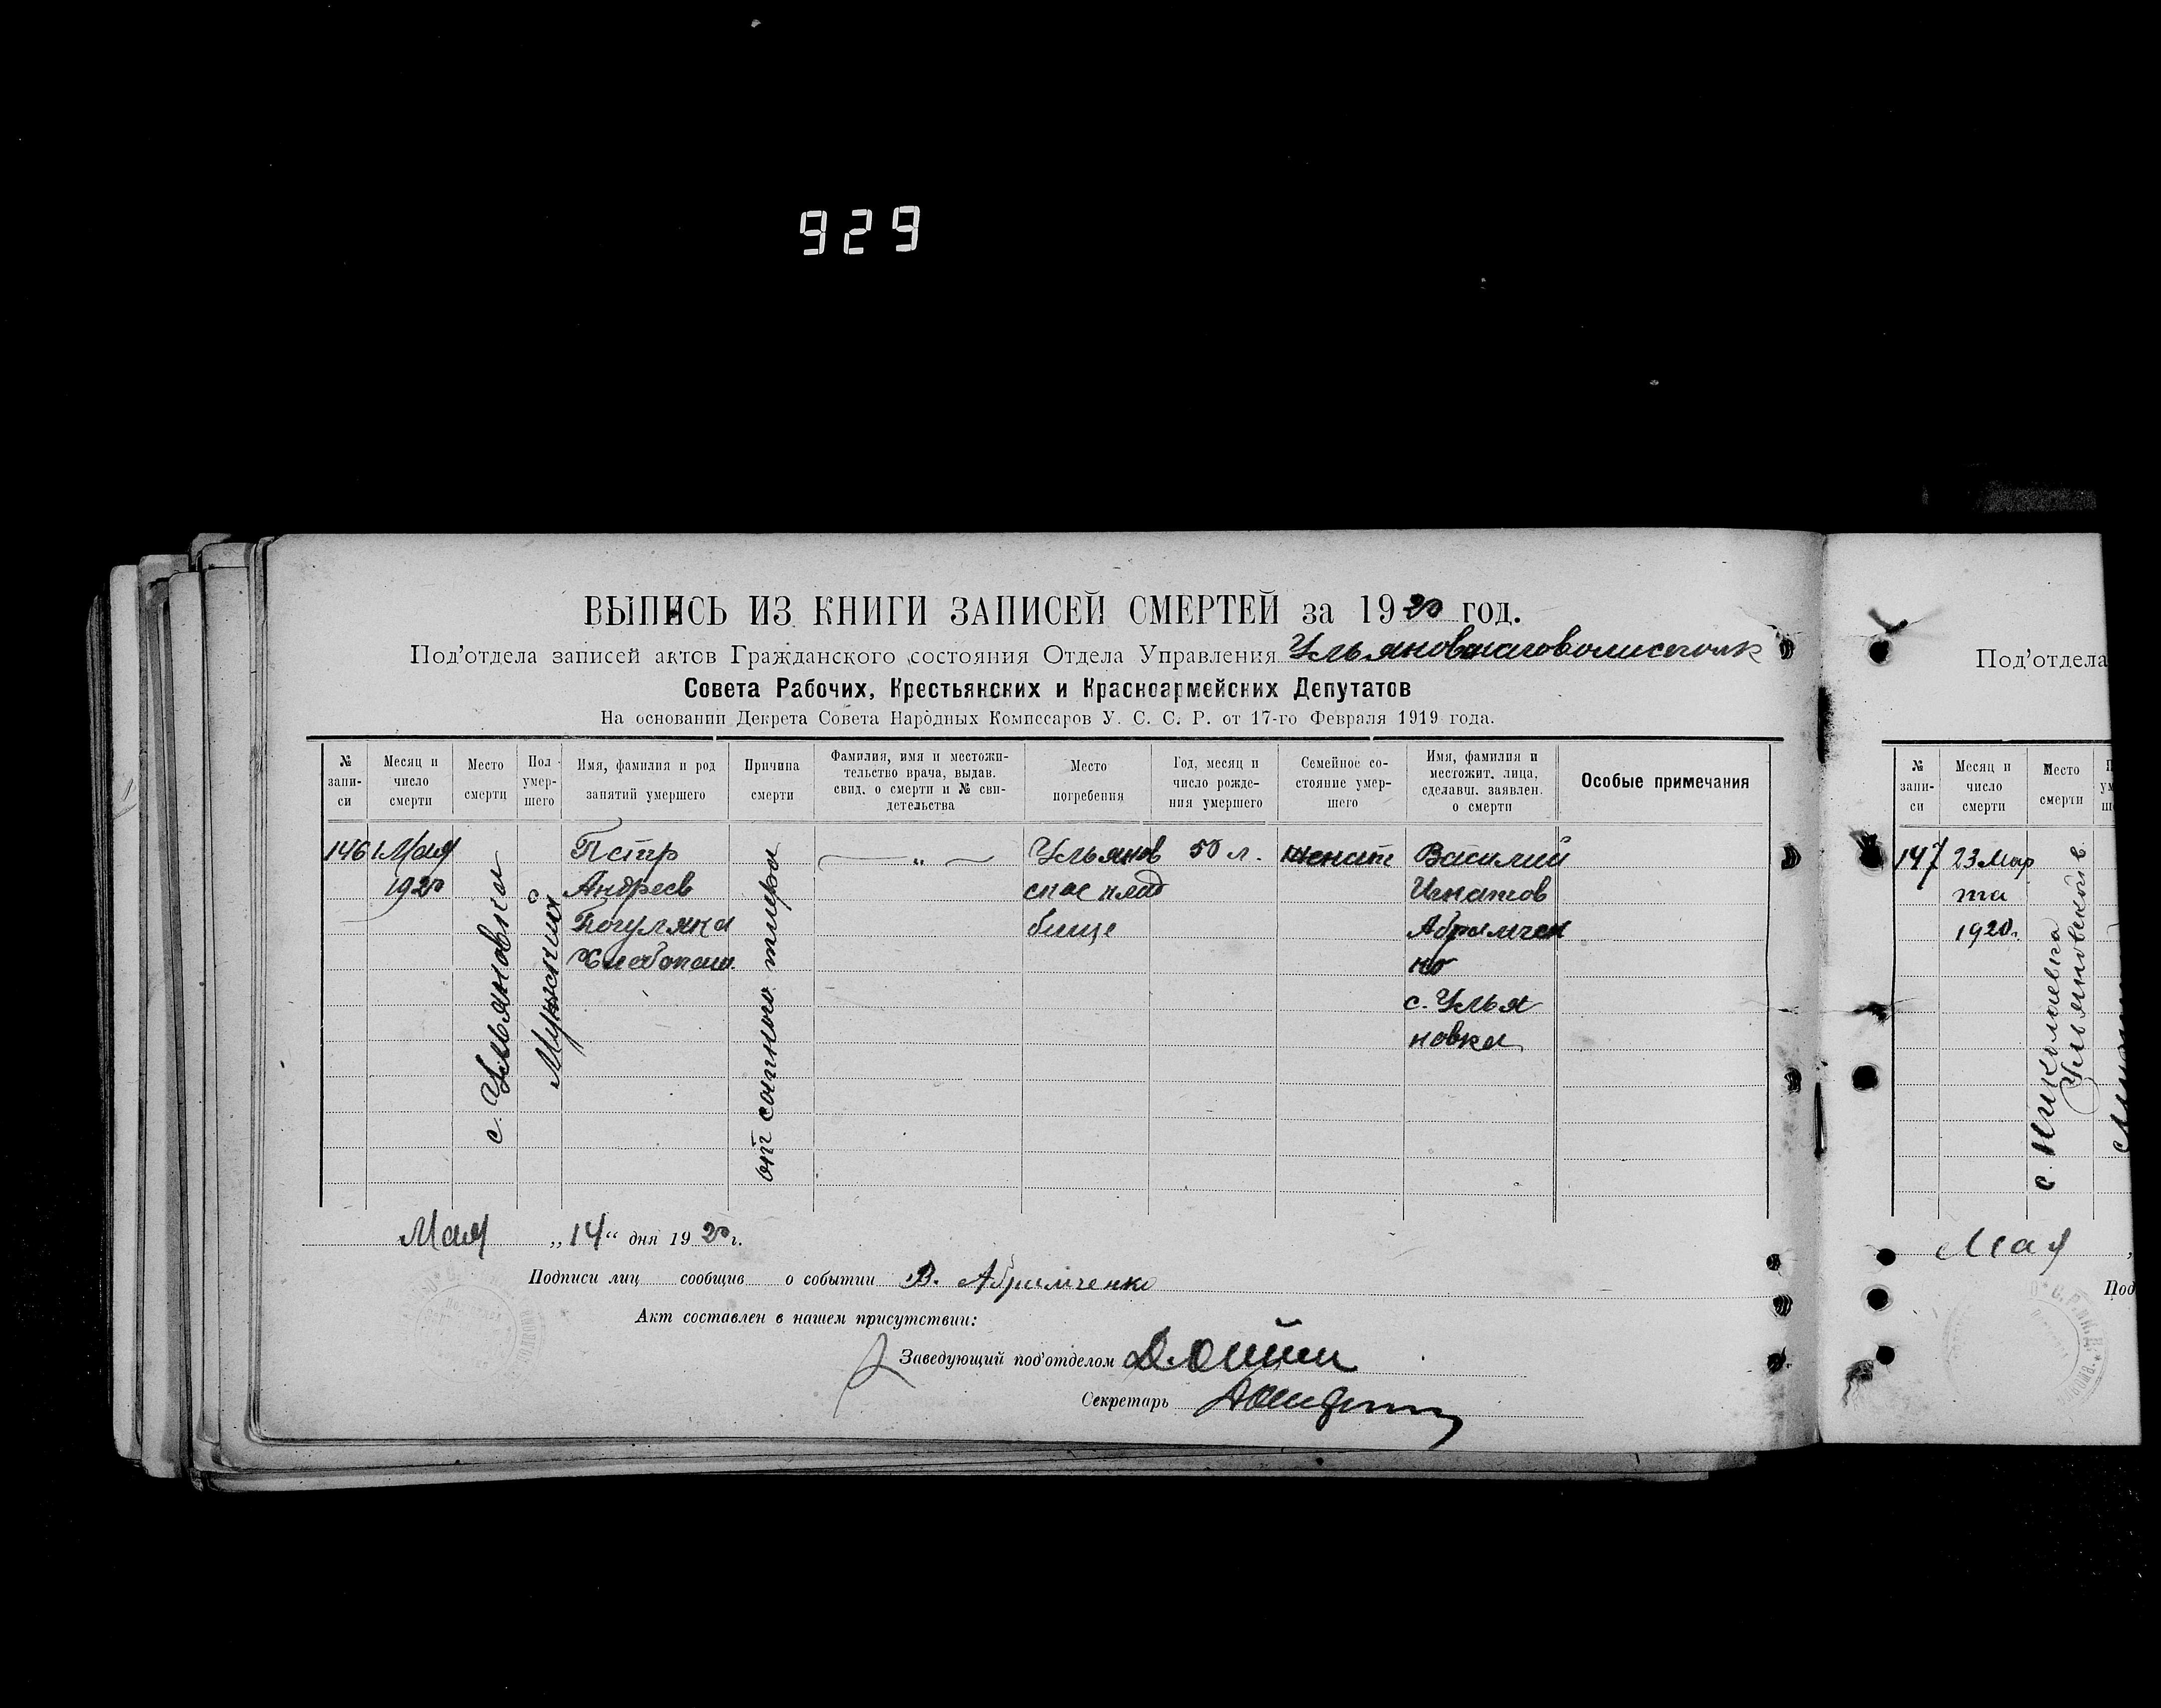 929
ВЫПИСЬ ИЗ КНИГИ ЗАПИСЕЙ СМЕРТЕЙ за 1920 год.
Под'отдела записей актов Гражданского состояния Отдела Управления
Совета Рабочих, Крестьянских и Красноармейских Депутатов
На основании Декрета Совета Народных Комиссаров У. С. С. Р. от 17-го Февраля 1919 года.
№ запи-си
Месяц и число смерти
Место смерти
Пол умер-шего
Имя, фамилия и род занятий умершего
Причина смерти
Фамилия, имя и местожи-тельство врача, выдав. свид. о смерти и № сви-детельства
Место погребения
Год, месяц и число рожде-ния умершего
Семейное со-стояние умер-шего
Имя, фамилия и местожит. лица, сделавш. заявлен. о смерти
Особые примечания
146
1 Мая
1920
с. Ульяновка
Мужской
Петр
Андреев
Хлебопаш.
от сыпного тифа
— „ —
Ульянов
ское клад
бище
50 л.
женат
Василий
Игнатов
Абрамчен
ко
с. Улья
новка
Мая „14“ дня 1920 г.
Подписи лиц сообщив о событии В. Абрамченко
Акт составлен в нашем присутствии:
Заведующий под'отделом
Секретарь
Под'отдела
№ запи-си
Месяц и число смерти
Место смерти
147
23 Мар
та
1920 г.
с. Николаевка
Ульяновской в.
Мая
Под